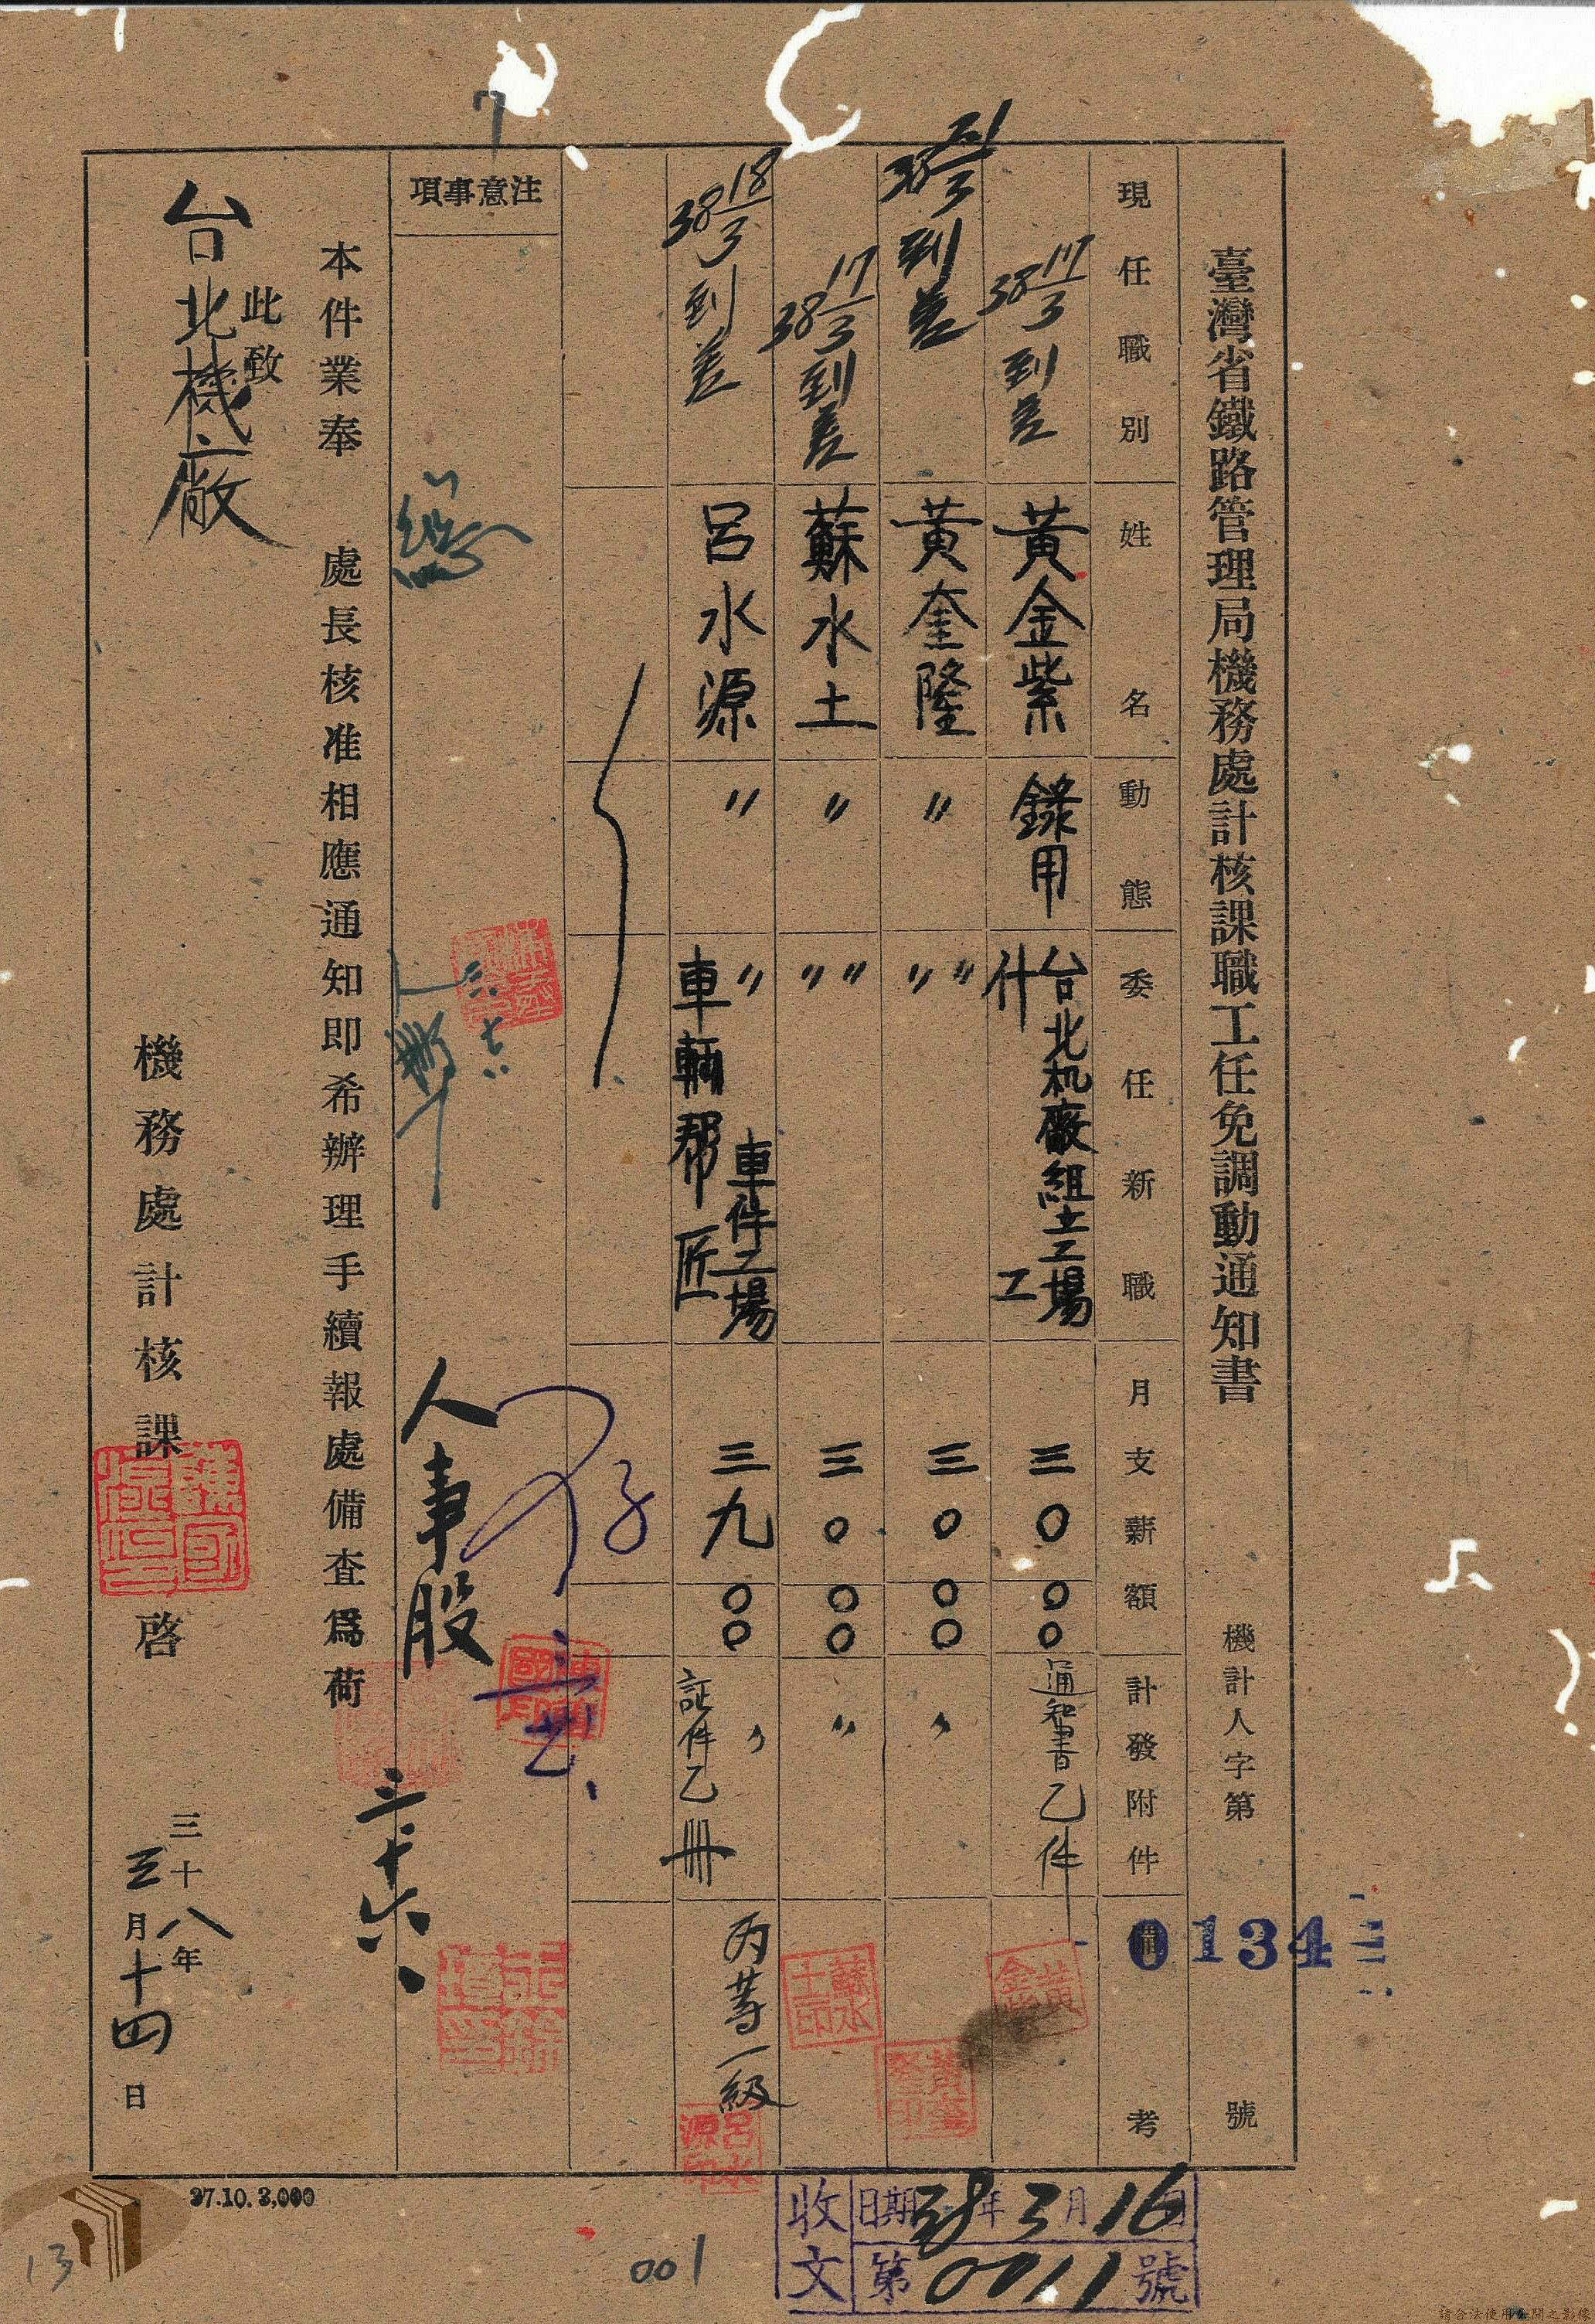 臺灣省鐵路管理局機務處計核課職工任免調動通知書
機計人字第 0134 號
現任職別 姓名 動態 委任新職 月支薪額 計發附件 備考
38 17/3 到差 黃金紫 錄用 台北机廠組立工場 什工 三〇 〇〇 通知書乙件
38 21/3 到差 黃奎隆 〃 〃 〃 三〇 〇〇 〃
38 17/3 到差 蘇水土 〃 〃 〃 三〇 〇〇 〃
38 18/3 到差 呂水源 〃 〃 車件工場 車輛幫匠 三九 〇〇 〃 証件乙册 丙等一級
黃金
黃奎隆印
蘇水土印
呂水源印
注意事項
人事股
本件業奉 處長核准相應通知即希辦理手續報處備查爲荷
三十六
此致
台北機廠
機務處計核課 啓
三十八年三月十四日
37.10.3,000
001
收文 日期 38年3月16日
第0011號
13
7
請合法使用公開之影像